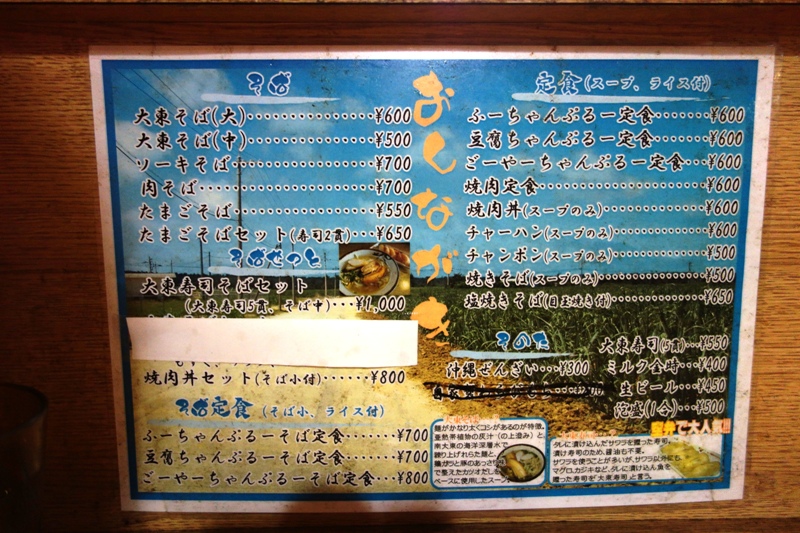 おしながき
そば
大東そば(大)‥‥‥‥‥‥¥600
大東そば(中)‥‥‥‥‥‥¥500
ソーキそば‥‥‥‥‥‥¥700
肉そば‥‥‥‥‥‥¥700
たまごそば‥‥‥‥‥‥¥550
たまごそばセット(寿司2貫)‥‥¥650
そばせっと
大東寿司そばセット
(大東寿司5貫、そば中)‥‥¥1,000
焼肉丼セット(そば小付)‥‥‥‥¥800
そば定食(そば小、ライス付)
ふーちゃんぷるーそば定食‥‥‥¥700
豆腐ちゃんぷるーそば定食‥‥‥¥700
ごーやーちゃんぷるーそば定食‥‥¥800
定食(スープ、ライス付)
ふーちゃんぷるー定食‥‥‥‥¥600
豆腐ちゃんぷるー定食‥‥‥‥¥600
ごーやーちゃんぷるー定食‥‥¥600
焼肉定食‥‥‥‥‥‥¥600
焼肉丼(スープのみ)‥‥‥‥‥‥¥600
チャーハン(スープのみ)‥‥‥‥¥600
チャンポン(スープのみ)‥‥‥‥¥500
焼きそば(スープのみ)‥‥‥‥¥500
塩焼きそば(目玉焼き付)‥‥‥‥¥650
そのた
沖縄ぜんざい‥‥¥300
大東寿司(5貫)‥‥¥550
ミルク金時‥‥¥400
生ビール‥‥¥450
泡盛(1合)‥‥¥500
麺がかなり太くコシがあるのが特徴。
亜熱帯植物の灰汁(の上澄み)と、
南大東の海洋深層水で
練り上げられた麺と、
鶏ガラと豚のあっさり
で整えたカツオだしを
ベースに使用したスープ
空弁で大人気!!!
タレに漬け込んだサワラを握った寿司。
漬け寿司のため、醤油も不要。
サワラを使うことが多いが、サワラ以外にも
マグロ、カジキなど、タレに漬け込んだ魚を
握った寿司を「大東寿司」と言う。